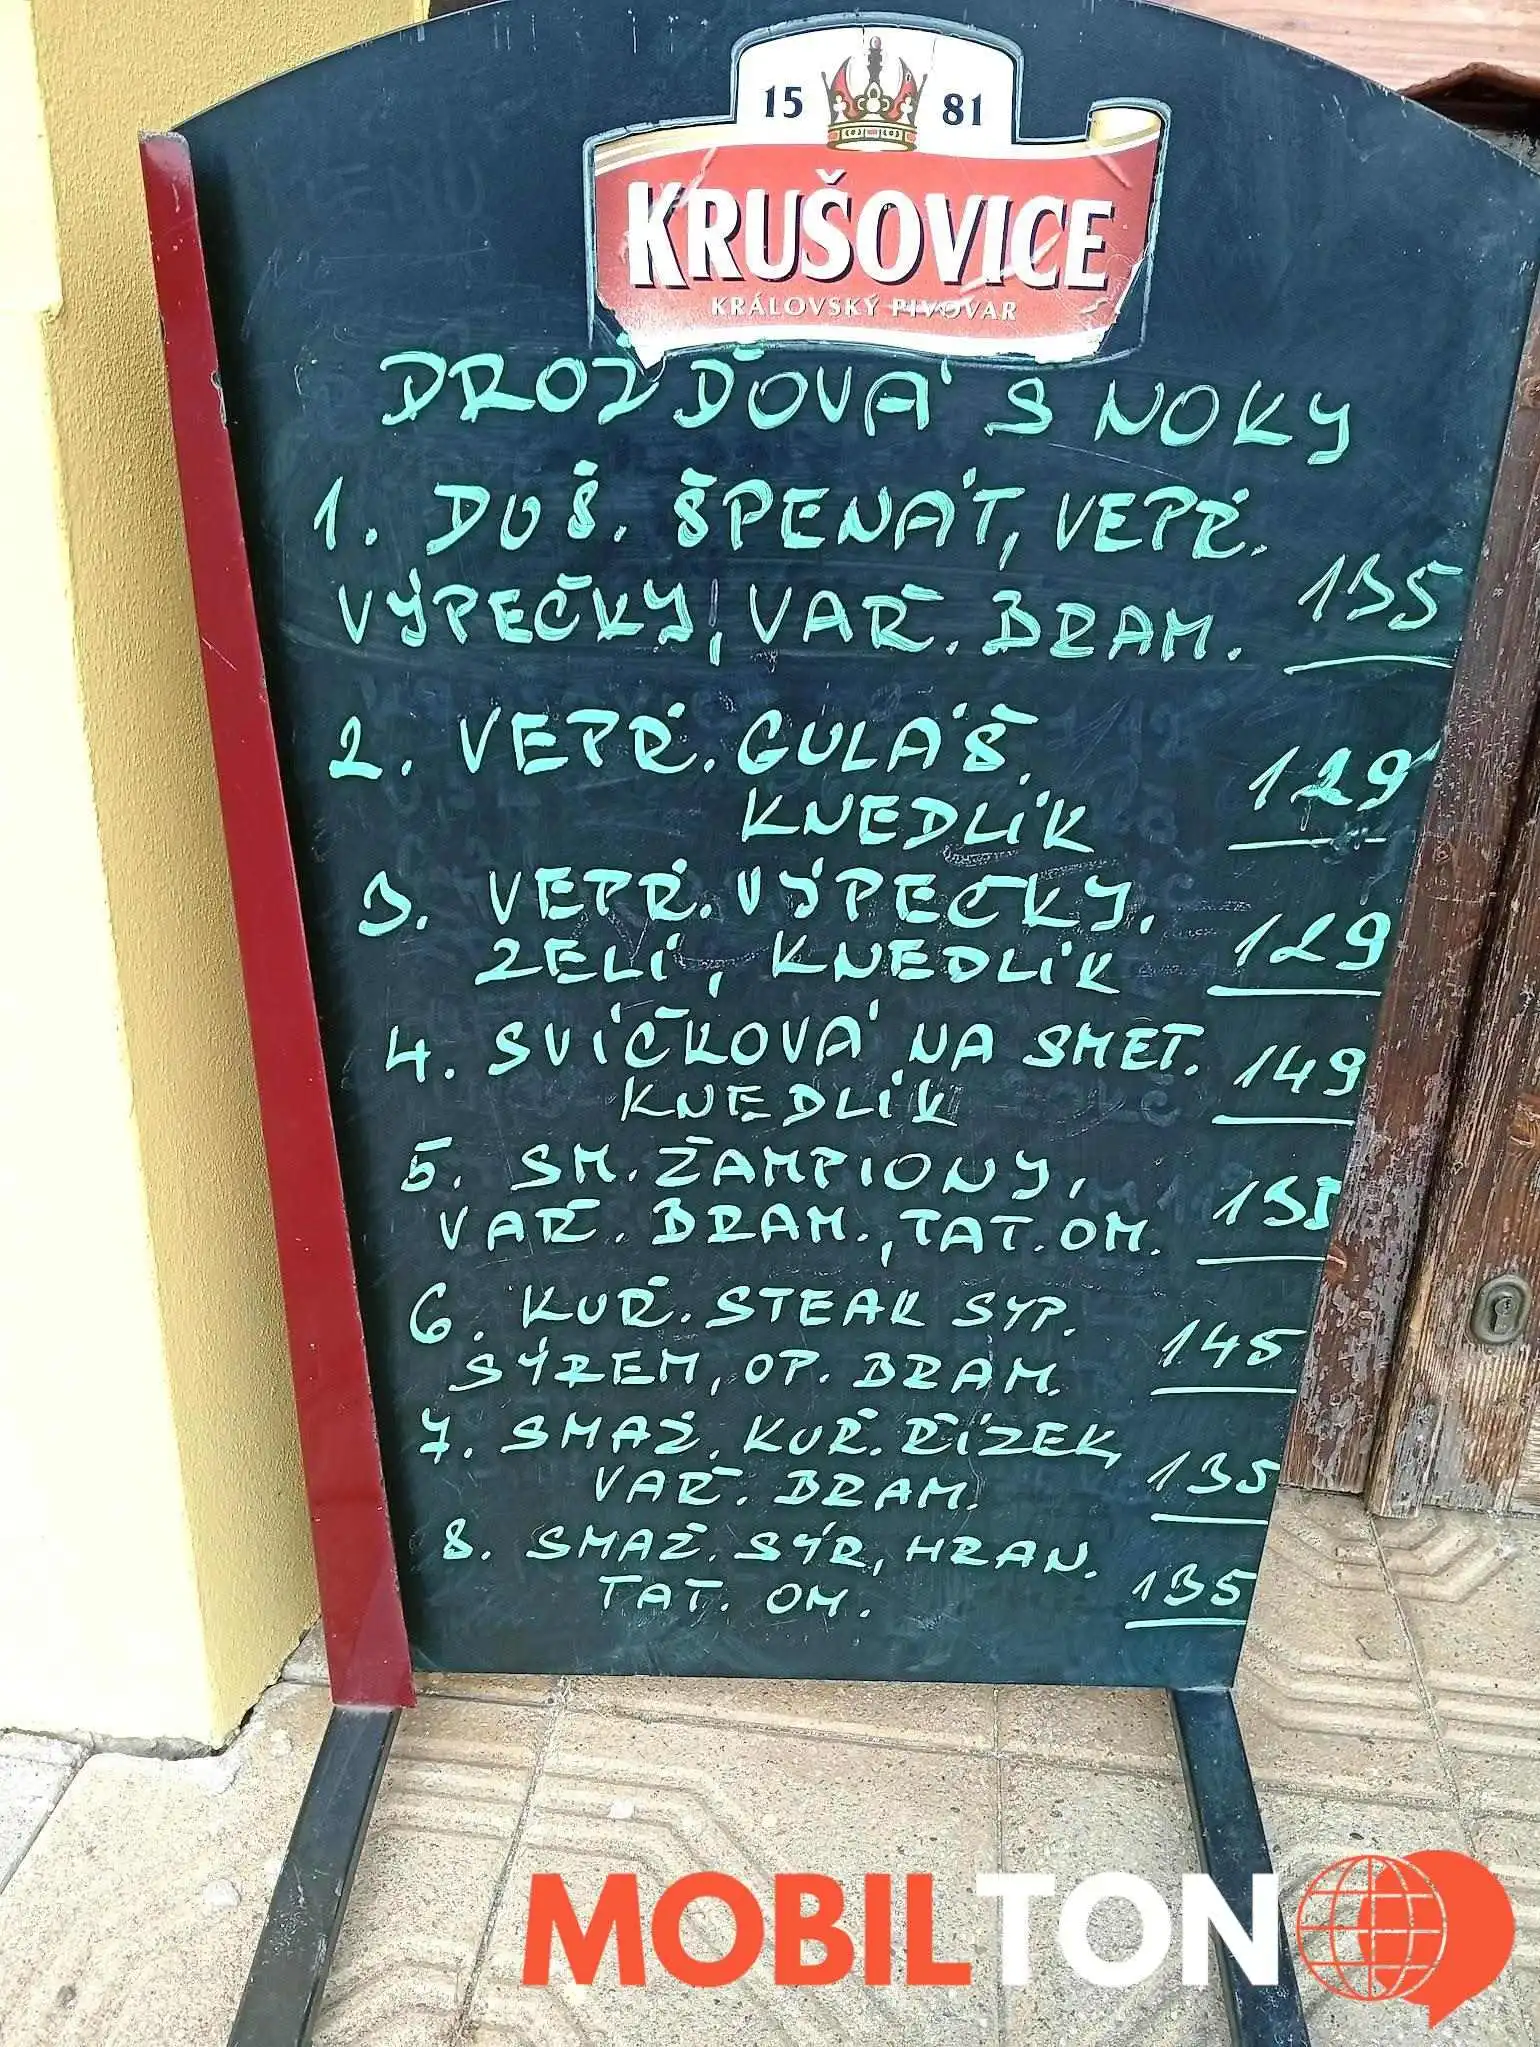 15 81
KRUŠOVICE
KRÁLOVSKÝ PIVOVAR
DROŽĎOVÁ S NOKY
1. DUŠ. ŠPENÁT, VEPŘ.
VÝPEČKY, VAŘ. BRAM. 135
2. VEPŘ. GULÁŠ.
KNEDLÍK 129
3. VEPŘ. VÝPEČKY.
ZELÍ, KNEDLÍK 129
4. SVÍČKOVÁ NA SMET. 149
KNEDLÍK
5. SM. ŽAMPIONY,
VAŘ. BRAM., TAT. OM. 135
6. KUŘ. STEAK SYP.
SÝREM, OP. BRAM. 145
7. SMAŽ. KUŘ. ŘÍZEK,
VAŘ. BRAM. 135
8. SMAŽ. SÝR, HRAN.
TAT. OM. 135
MOBILTON